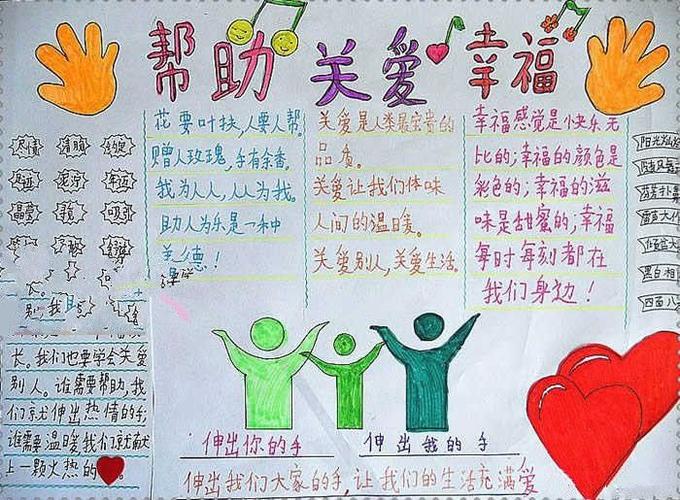 帮助 关爱 幸福
花要叶扶,人要人帮。
赠人玫瑰,手有余香。
我为人人,人人为我。
助人为乐是一种
美德!
关爱是人类最宝贵的
品质。
关爱让我们体味
人间的温暖。
关爱别人,关爱生活。
幸福感觉是快乐无
比的;幸福的颜色是
彩色的;幸福的滋
味是甜蜜的,幸福
每时每刻都在
我们身边!
尽情
温馨
吸引
阳光灿烂
雷声大作
黑白相
四面八
长。我们也要学会关爱
别人。谁需要帮助,我
们就伸出热情的手;
谁需要温暖我们就献
上一颗火热的
伸出你的手 伸出我的手
伸出我们大家的手,让我们的生活充满爱